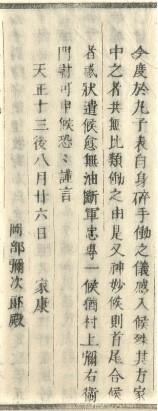 今度於丸子表自身碎手働之儀感入候殊其方家
中之者共無比類働之由是又神妙候則首尾合候
者感状遣候愈無油断軍忠専一候猶村上彌右衛
門尉可申候恐〻謹言
天正十三後八月廿六日　家康
岡部彌次郎殿